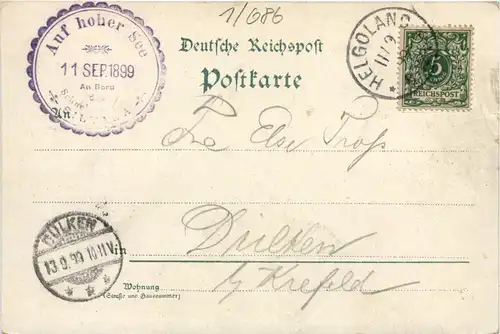 1/686
Auf hoher See
11 SEP. 1899
An Bord
der
Deutsche Reichspost
Postkarte
HELGOLAND
11/9
5
REICHSPOST
An
Else
Dülken
b/ Krefeld
DÜLKEN
13.9.99 10-11V.
in
Wohnung
(Straße und Hausnummer)